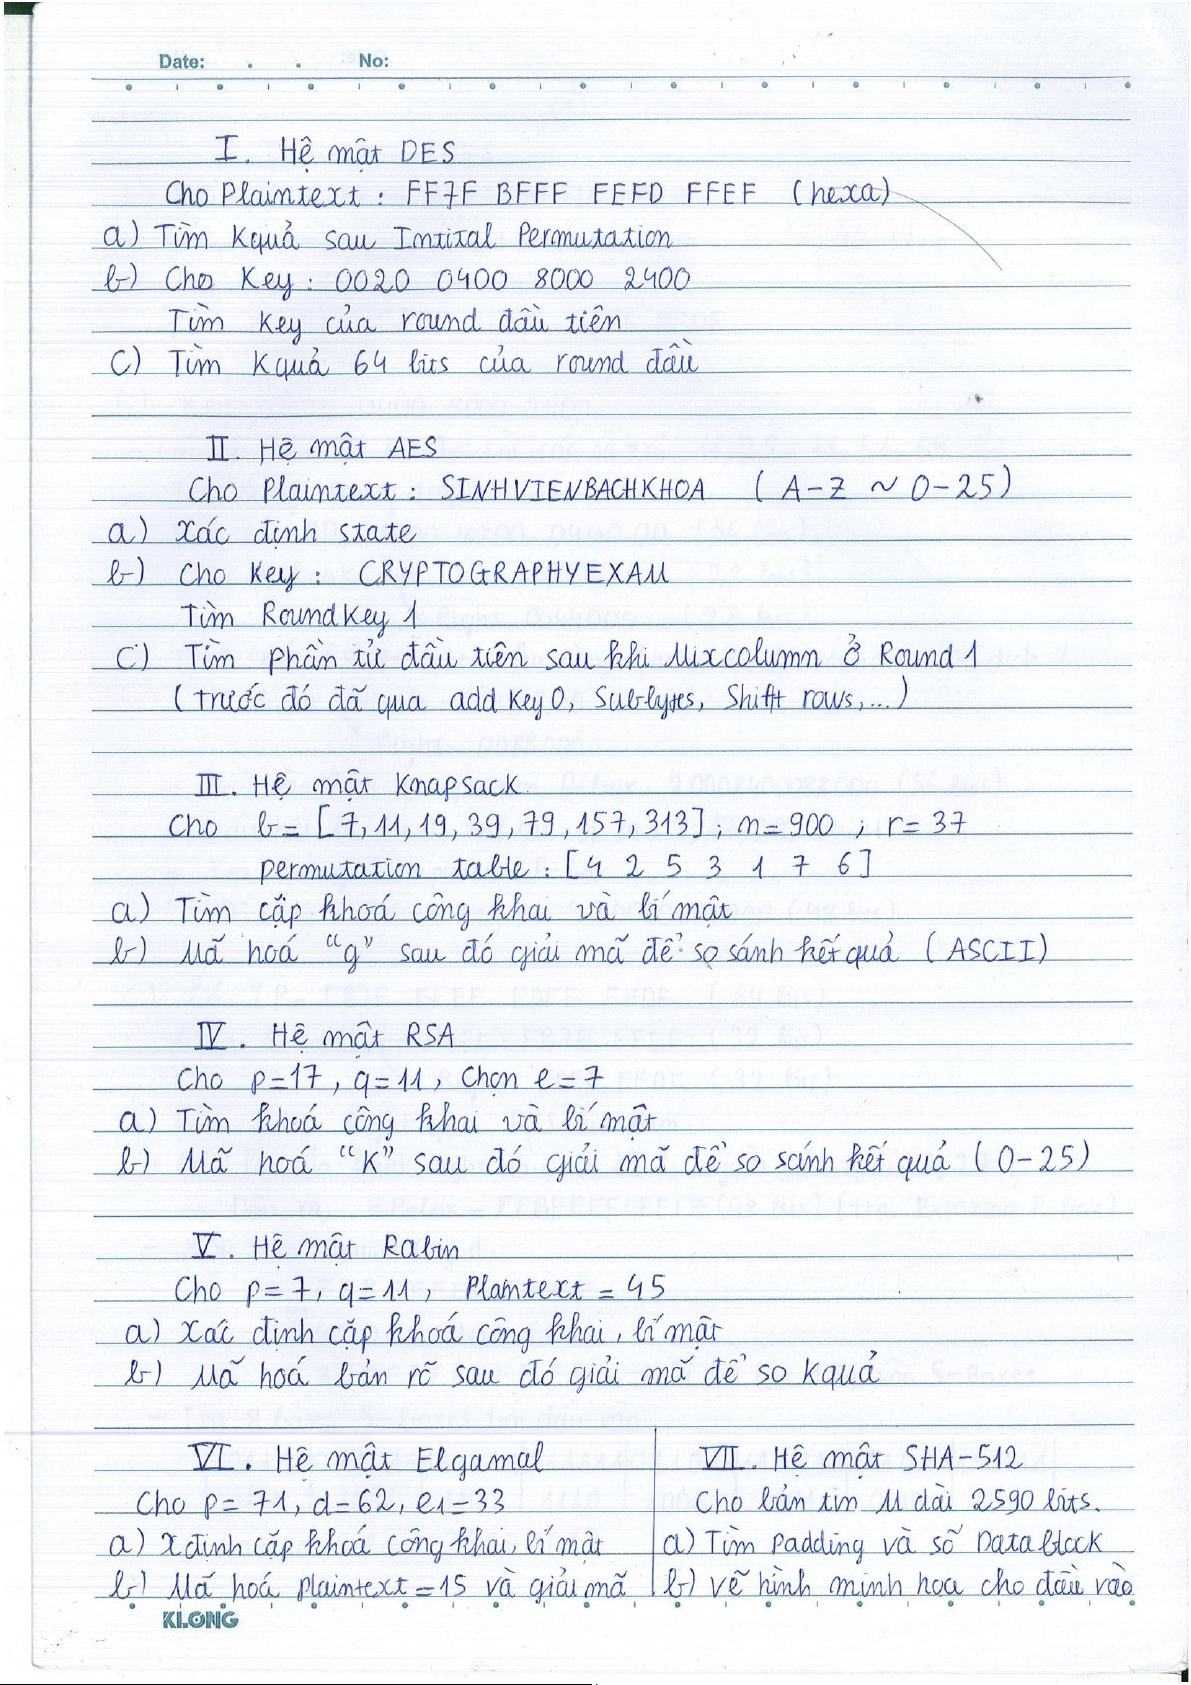 Date: . . No:
I. Hệ mật DES
Cho Plaintext : FF7F BFFF FEFD FFEF (hexa)
a) Tìm Kquả sau Initital Permutation
b) Cho Key : 0020 0400 8000 2400
Tìm Key của round đầu tiên
c) Tìm Kquả 64 bits của round đầu
II. Hệ mật AES
Cho Plaintext : SINHVIENBACHKHOA ( A-Z ~ 0-25)
a) Xác định state
b) Cho Key : CRYPTOGRAPHYEXAM
Tìm RoundKey 1
c) Tìm phần tử đầu tiên sau khi Mixcolumn ở Round 1
(trước đó đã qua add Key 0, Subbytes, Shift rows,...)
III. Hệ mật Knapsack
Cho b = [7, 11, 19, 39, 79, 157, 313] ; n = 900 ; r = 37
permutation table : [4 2 5 3 1 7 6]
a) Tìm cặp khoá công khai và bí mật
b) Mã hoá "g" sau đó giải mã để so sánh kết quả (ASCII)
IV. Hệ mật RSA
Cho p=17, q=11, Chọn e=7
a) Tìm khoá công khai và bí mật
b) Mã hoá "K" sau đó giải mã để so sánh kết quả (0-25)
V. Hệ mật Rabin
Cho p=7, q=11, Plaintext = 45
a) Xác định cặp khoá công khai, bí mật
b) Mã hoá bản rõ sau đó giải mã để so Kquả
VI. Hệ mật Elgamal
Cho p=71, d=62, e1=33
a) Xđịnh cặp khoá công khai, bí mật
b) Mã hoá plaintext = 15 và giải mã
VII. Hệ mật SHA-512
Cho bản tin M dài 2590 bits.
a) Tìm Padding và số Datablock
b) Vẽ hình minh hoạ cho đầu vào
KLONG